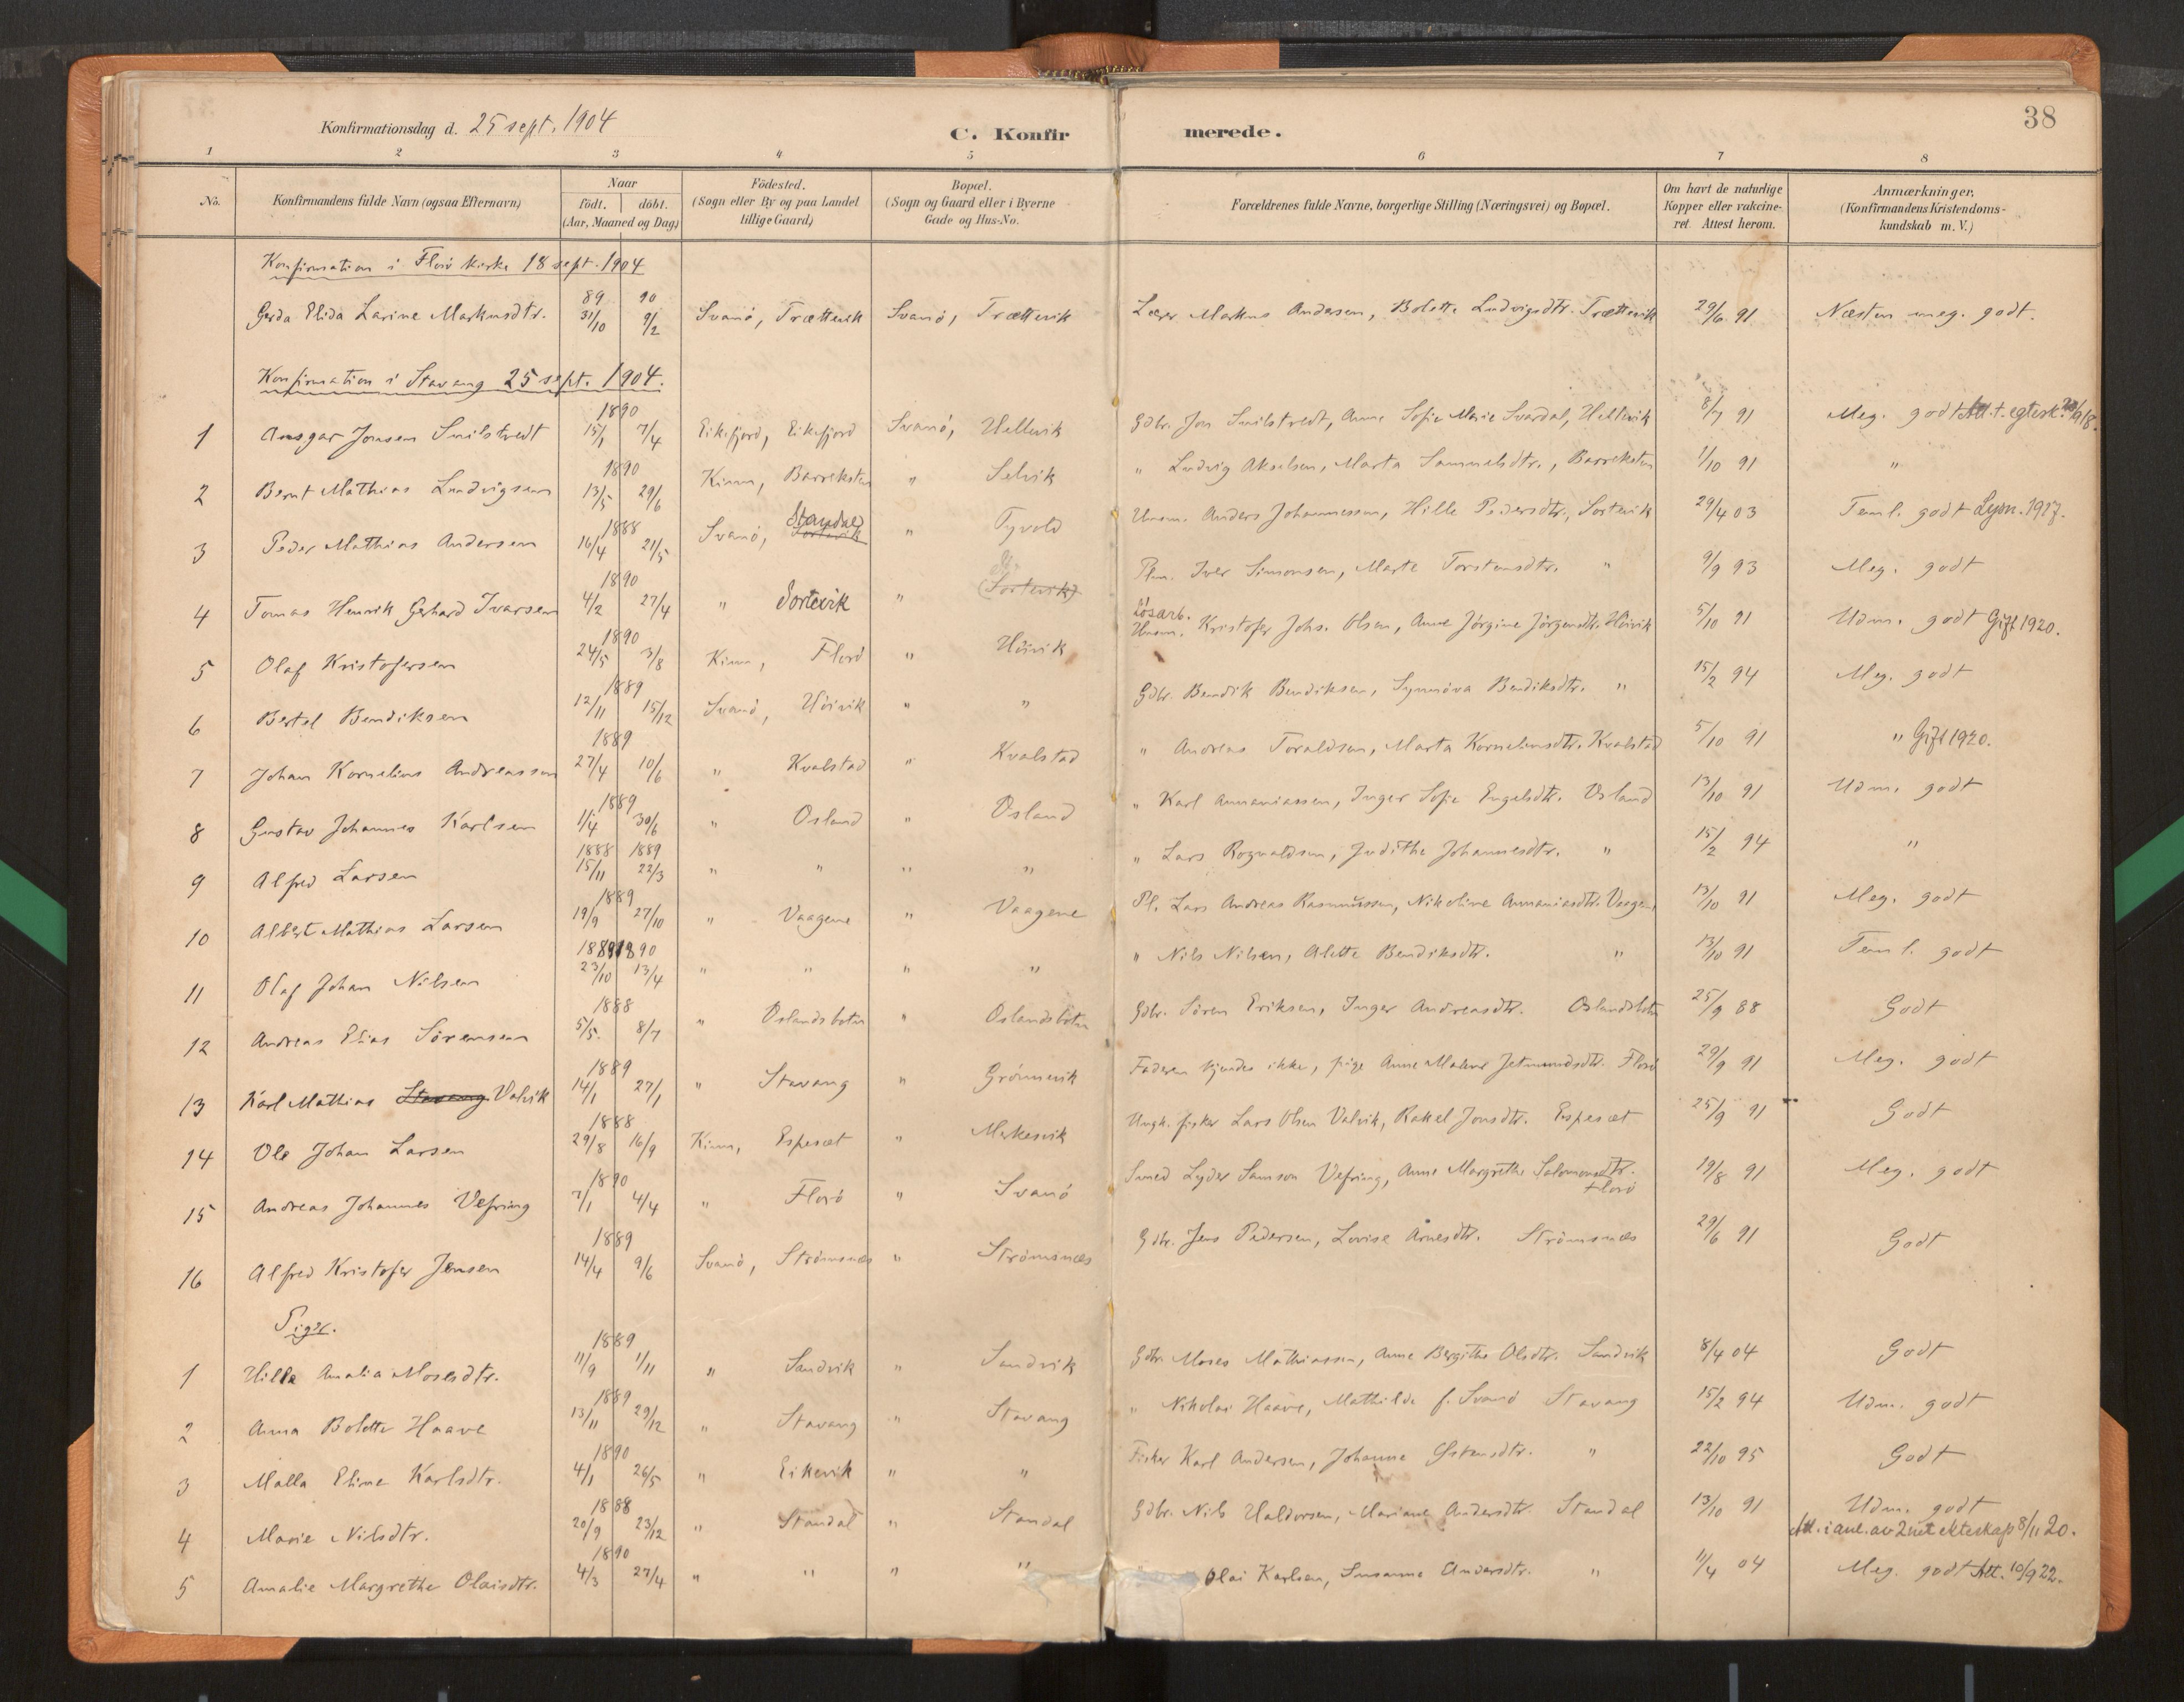 38
Konfirmationsdag d. 25 sept. 1904
C. Konfirmerede.
1 2 3 4 5 6 7 8
No. Konfirmandens fulde Navn (ogsaa Efternavn) Naar födt. döbt. (Aar, Maaned og Dag) Födested. (Sogn eller By og paa Landet tillige Gaard) Bopæl. (Sogn og Gaard eller i Byerne Gade og Hus-No. Forældrenes fulde Navne, borgerlige Stilling (Næringsvei) og Bopæl. Om havt de naturlige Kopper eller vakcineret. Attest herom. Anmærkninger. (Konfirmandens Kristendomskundskab m.V.)
Konfirmation i Florö kirke 18 sept. 1904
Gerda Elida Larine Markusdtr. 89 31/10 90 9/2 Svanö, Trættevik Svanö, Trættevik Lærer Markus Andersen, Bolette Ludvigsdtr. Trættevik 29/6 91 Næsten meg. godt.
Konfirmation i Stavang 25 sept. 1904.
1 Ansgar Jonsen Smilstvedt 1890 15/1 7/4 Eikefjord, Eikefjord Svanö, Hellevik Gdbr. Jon Smilstvedt, Anne Sofie Marie Svardal, Hellevik 8/7 91 Meg. godt Att. t. egtesk.
2 Bernt Mathias Ludvigsen 1890 13/5 29/6 Kinn, Barreksten " Selvik " Ludvig Akselsen, Marta Samuelsdtr., Barreksten 1/10 91 "
3 Peder Mathias Andersen 1888 16/4 21/5 Svanö, Standal Sortevik " Tyvold Unm. Anders Johannessen, Hille Pedersdtr., Sortevik 29/4 03 Teml. godt Lysn. 1917.
4 Tomas Henrik Gerhard Ivarsen 1890 4/2 27/4 " Sortevik " (Sortevik) Plm. Iver Simonsen, Marte Torstensdtr. " 9/9 93 Meg. godt
5 Olaf Kristofersen 1890 24/5 3/8 Kinn, Florö " Höivik Lösarb. Kristofer Johs. Olsen, Anne Jörgine Jörgensdtr. Höivik 5/10 91 Udm. godt Gift 1920.
6 Bertel Bendiksen 1889 12/11 15/12 Svanö, Höivik " " Gdbr. Bendik Bendiksen, Synnöva Bendiksdtr. " 15/2 94 Meg. godt
7 Johan Kornelius Andreassen 1889 27/4 10/6 " Kvalstad " Kvalstad " Andreas Toraldsen, Marta Korneliusdtr. Kvalstad 5/10 91 " Gift 1920.
8 Gustav Johannes Karlsen 1889 11/4 30/6 " Osland " Osland " Karl Annaniassen, Inger Sofie Engelsdtr. Osland 13/10 91 Udm. godt
9 Alfred Larsen 1888 15/11 1889 22/3 " " " " " Lars Rognaldsen, Judithe Johannesdtr. " 15/2 94 "
10 Albert Mathias Larsen 1889 19/9 27/10 " Vaagene " Vaagene Pl. Lars Andreas Rasmussen, Nikoline Annaniasdtr. Vaagene 13/10 91 Meg. godt
11 Olaf Johan Nilsen 1889 23/10 1890 13/4 " " " " " Nils Nilsen, Alette Bendiksdtr. " 13/10 91 Teml. godt
12 Andreas Elias Sörensen 1888 5/5. 8/7 " Oslandsbotn " Oslandsbotn Gdbr. Sören Eriksen, Inger Andreasdtr. Oslandsbotn 25/9 88 Godt
13 Karl Mathias Stavang Valvik 1889 14/1 27/1 " Stavang " Grönnevik Faderen kjendes ikke, pige Anne Malene Jetmundsdtr. Florö 29/9 91 Meg. godt
14 Ole Johan Larsen 1888 29/8 16/9 Kinn, Espesæt " Merkesvik Ungk. fisker Lars Olsen Valvik, Rakel Jonsdtr. Espesæt 25/9 91 Godt
15 Andreas Johannes Vefring 1890 7/1 4/4 " Florö " Svanö Smed Lyder Samson Vefring, Anne Margrethe Salomonsdtr. Florö 19/8 91 Meg. godt
16 Alfred Kristofer Jensen 1889 14/4 9/6 Svanö, Strömsnæs " Strömsnæs Gdbr. Jens Pedersen, Lovise Arnesdtr. Strömsnæs 29/6 91 Godt
Piger.
1 Hilla Amalia Mosesdtr. 1889 11/9 1/11 " Sandvik " Sandvik Gdbr. Moses Mathiassen, Anne Bergithe Olsdtr. Sandvik 8/4 04 Godt
2 Anna Bolette Haave 1889 13/11 29/12 " Stavang " Stavang " Nikolai Haave, Mathilde f. Svanö Stavang 15/2 94 Udm. godt
3 Malla Eline Karlsdtr. 1890 4/1 26/5 " Eikevik " " Fisker Karl Andersen, Johanne Östensdtr. " 22/10 95 Godt
4 Marie Nilsdtr. 1888 20/9 23/12 " Standal " Standal Gdbr. Nils Haldorsen, Mariane Andersdtr. Standal 13/10 91 Udm. godt Att. i anl. av 2net ekteskap 8/11 20.
5 Amalie Margrethe Olaisdtr. 1890 4/3 27/4 " " " " " Olai Karlsen, Susanne Andersdtr. " 11/4 04 Meg. godt Att. 10/9 22.